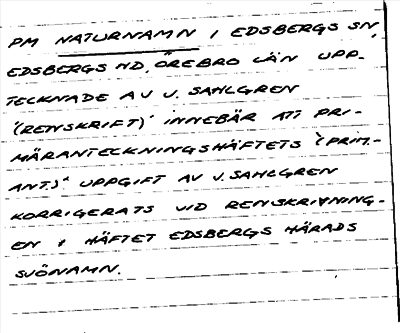 PM NATURNAMN I EDSBERGS SN,
EDSBERGS HD, ÖREBRO LÄN UPP-
TECKNADE AV J. SAHLGREN
"(RENSKRIFT)" INNEBÄR ATT PRI-
MÄRANTECKNINGSHÄFTETS "(PRIM.-
ANT.)" UPPGIFT AV J. SAHLGREN
KORRIGERATS VID RENSKRIVNING-
EN I HÄFTET EDSBERGS HÄRADS
SJÖNAMN.